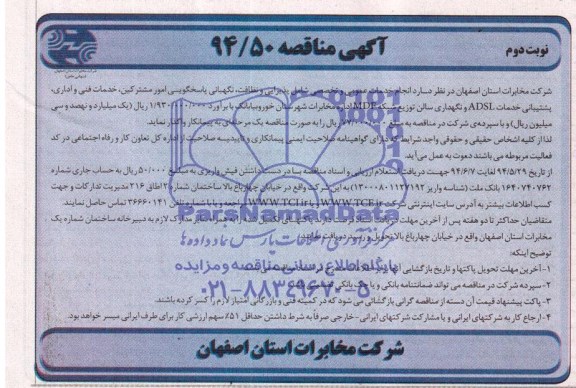 نوبت دوم
آگهی مناقصه ۹۴/۵۰
شرکت مخابرات استان اصفهان در نظر دارد انجام خدمات عمومی و تخصصی شامل پذیرایی و نظافت، نگهبانی پاسخگویی امور مشترکین، خدمات فنی و اداری،
پشتیبانی خدمات ADSL و نگهداری سالن توزیع شبکه MDF اداره مخابرات شهرستان خوروبیابانک با برآورد (یک میلیارد و نهصد و سی
میلیون ریال) و با سپرده‌ی شرکت در مناقصه به مبلغ ریال را به صورت مناقصه یک مرحله‌ای به پیمانکار واگذار نماید.
لذا از کلیه اشخاص حقیقی و حقوقی واجد شرایط که دارای گواهینامه صلاحیت ایمنی پیمانکاری و تاییدیه صلاحیت از اداره کل تعاون کار و رفاه اجتماعی در کد
فعالیت مربوطه می باشند دعوت به عمل می‌آید.
از تاریخ ۹۴/۵/۲۹ لغایت ۹۴/۶/۷ جهت دریافت استعلام ارزیابی و اسناد مناقصه با در دست داشتن فیش واریزی به مبلغ ۵۰/۰۰۰ ریال به حساب جاری شماره
۱۶۴۰۷۴۰۷۶۲ بانک ملت (شناسه واریز ) به این شرکت واقع در خیابان چهارباغ بالا ساختمان شماره ۲ اتاق ۲۱۶ مدیریت تدارکات و جهت
کسب اطلاعات بیشتر به آدرس سایت اینترنتی شرکت WWW.TCI مراجعه و یا با شماره تلفن ۳۶۶۶۰۱۴۱ تماس حاصل نمایند.
متقاضیان حداکثر تا دو هفته پس از آخرین مهلت به همراه سایر مدارک لازم به دبیرخانه ساختمان شماره یک
مخابرات استان اصفهان واقع در خیابان چهارباغ بالا تحویل و رسید دریافت دارند.
توضیح اینکه:
۱- آخرین مهلت تحویل پاکتها و تاریخ بازگشایی آنها
۲- سپرده شرکت در مناقصه می تواند ضمانتنامه بانکی و یا چک بانکی
۳- پاکت پیشنهاد قیمت آن دسته از مناقصه گران بازگشایی می شود که در کمیته فنی و بازرگانی امتیاز لازم را کسر کرده باشند.
۴- ارجاع کار به شرکتهای ایرانی و یا مشارکت شرکتهای ایرانی - خارجی صرفاً به شرط داشتن حداقل ۵۱٪ سهم ارزشی کار برای طرف ایرانی میسر خواهد بود.
شرکت مخابرات استان اصفهان
ParsNamadData
مرکز فرآوری اطلاعات پارس نماد داده ها
پایگاه اطلاع رسانی مناقصه و مزایده
۰۲۱-۸۸۳۴۹۶۷۰-۵